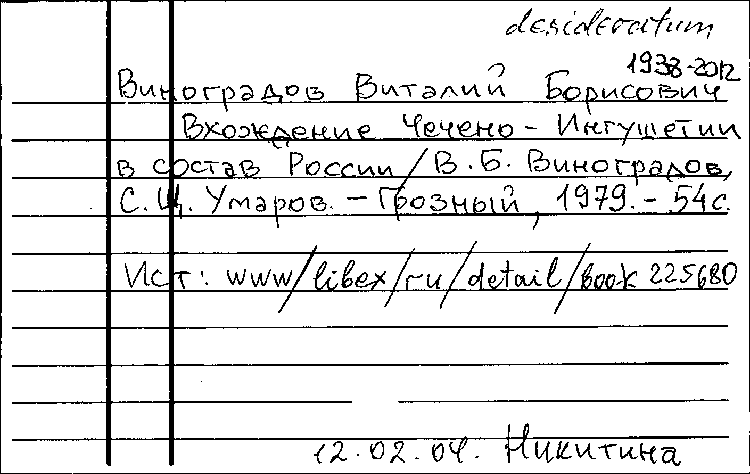 desideratum
1938-2012
Виноградов Виталий Борисович
Вхождение Чечено-Ингушетии
в состав России / В.Б. Виноградов,
С.Ц. Умаров. - Грозный, 1979. - 54 с.
Ист: www/libex/ru/detail/book 225680
12.02.04. Никитина